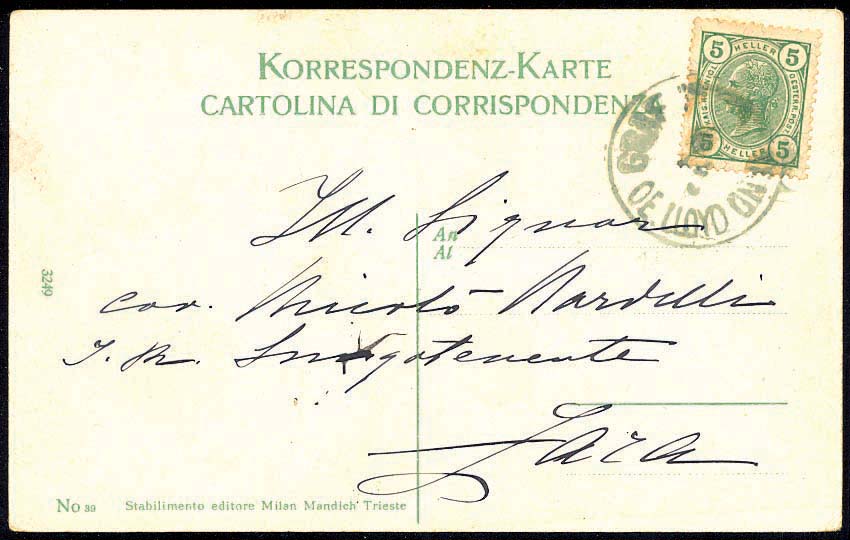 KORRESPONDENZ-KARTE
CARTOLINA DI CORRISPONDENZA
5 HELLER 5
5 HELLER 5
OE. LLOYD
Ill. Signor
An
Al
cav. Nicolò Nardelli
I. R. Luogotenente
Zara
3249
No 39 Stabilimento editore Milan Mandich Trieste